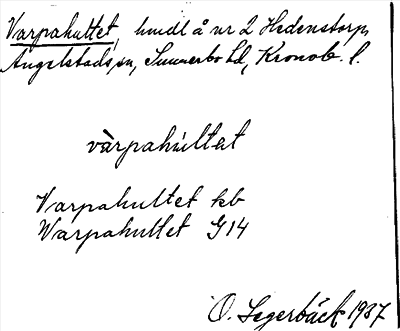 Varpahultet, hmdl å nr 2 Hedenstorp,
Angelstads sn, Sunnerbo hd, Kronob. l.
vàrpahúltet
Varpahultet kb
Warpahultet G14
O. Segerbäck 1937